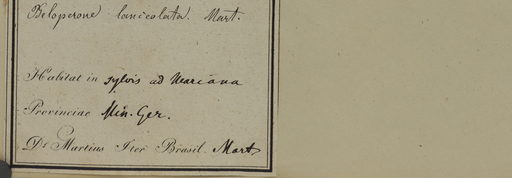 Beloperone lanceolata. Mart.
Habitat in sylvis ad Mariana
Provinciae Min. Ger.
Dr Martius Iter Brasil. Mart.